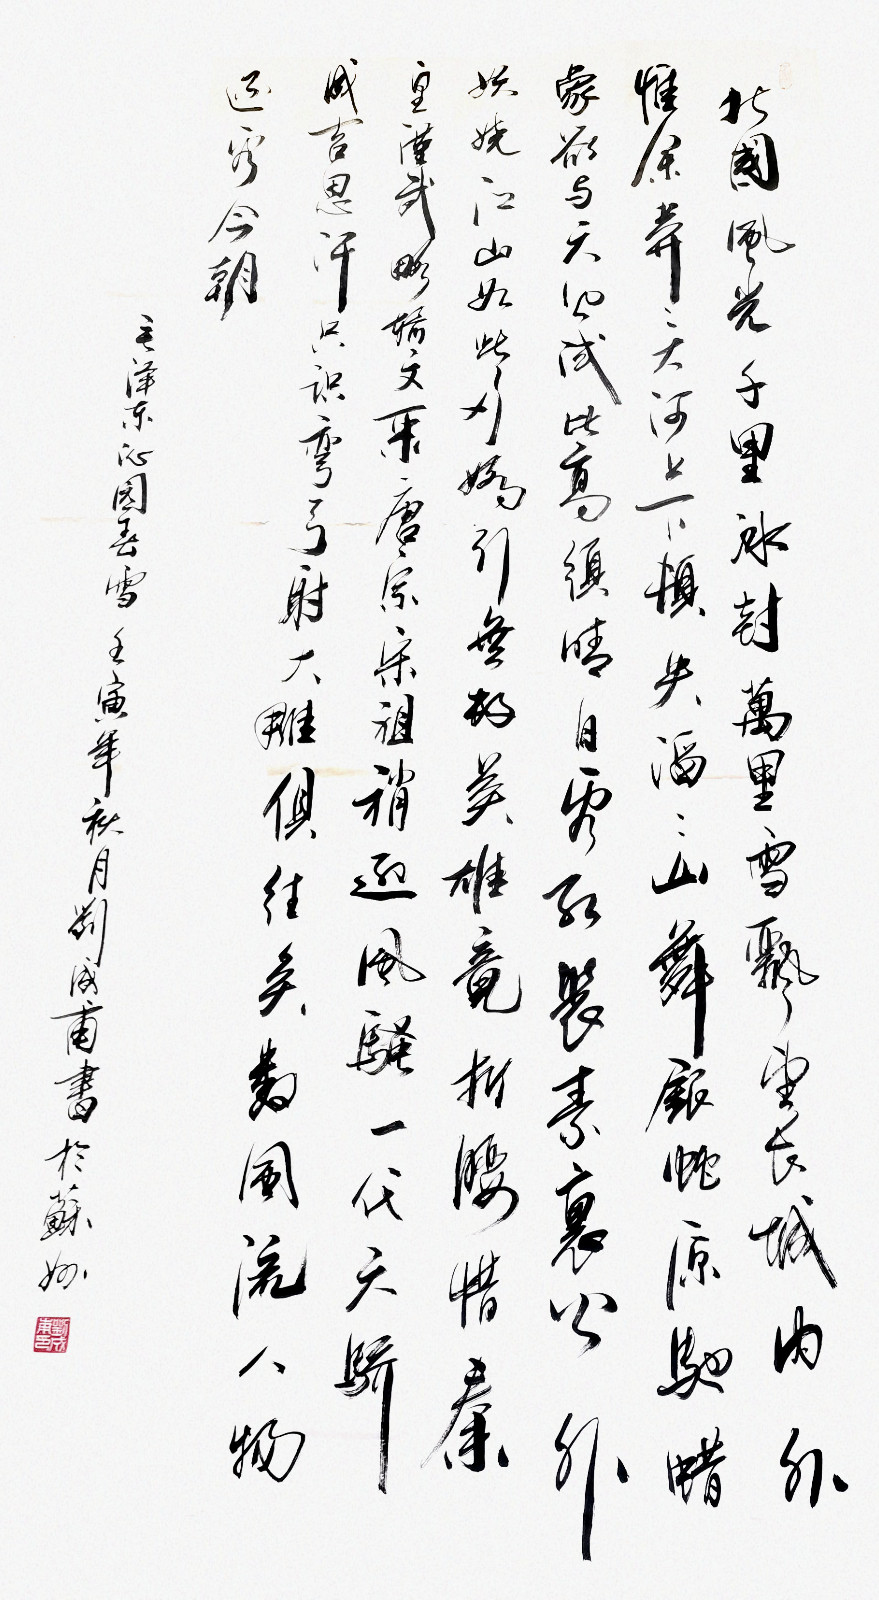 北國風光千里冰封萬里雪飄望长城内外
惟余莽〻大河上下頓失滔〻山舞銀蛇原馳蜡
象欲与天公试比高須晴日看红裝素裹分外
妖娆江山如此多嬌引無数英雄竟折腰惜秦
皇漢武略输文采唐宗宋祖稍逊風騷一代天驕
成吉思汗只识彎弓射大雕俱往矣數風流人物
还看今朝
毛泽东沁园春雪 壬寅年秋月劉成甫書於蘇州